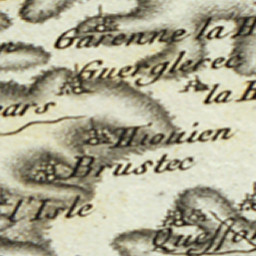 Garenne la
Guerglerec
la
ears
Hiouien
Brustec
l'Isle